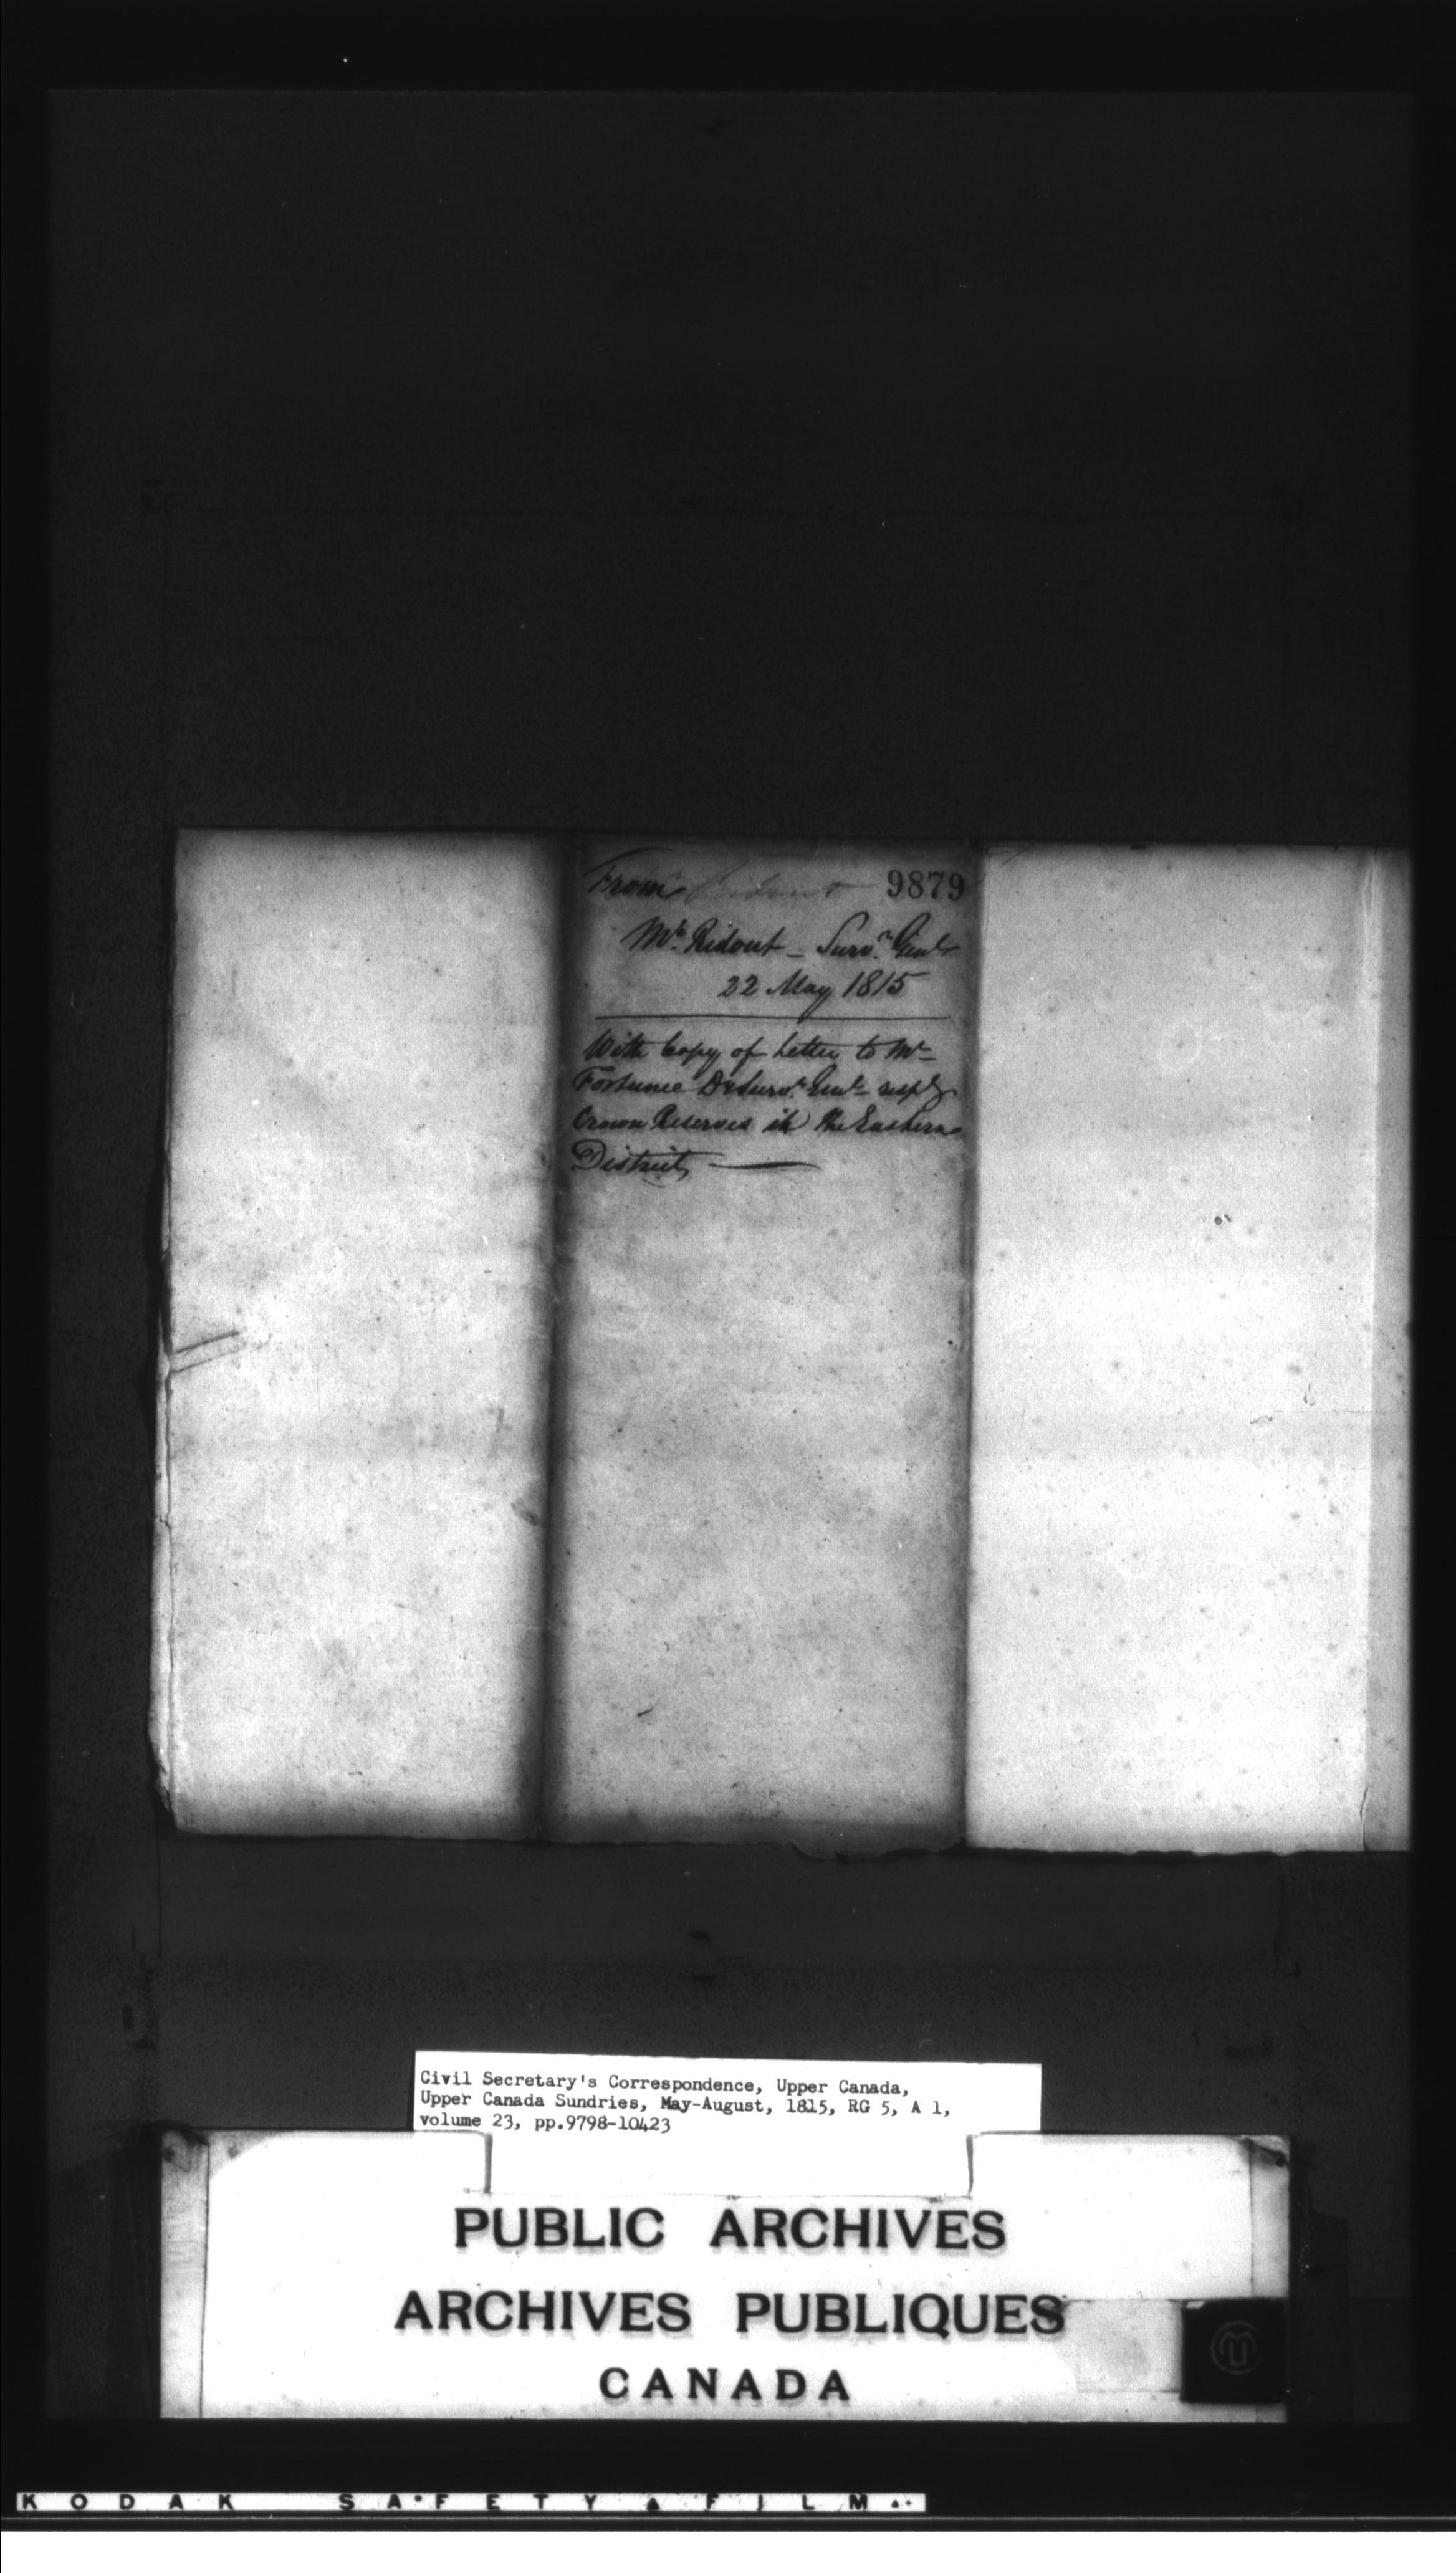 From Ridout 9879
Mr. Ridout - Survr. Genl
22 May 1815
With Copy of Letter to Mr
Fortune Dy Survr. Genl respg
Crown Reserves in the Eastern
District
Civil Secretary's Correspondence, Upper Canada,
Upper Canada Sundries, May-August, 1815, RG 5, A 1,
volume 23, pp.9798-10423
PUBLIC ARCHIVES
ARCHIVES PUBLIQUES
CANADA
KODAK SAFETY FILM